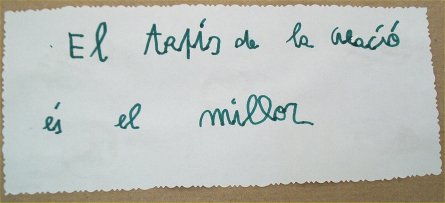 El tapís de la creació
és el millor